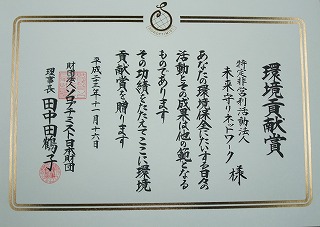 環境貢献賞
特定非営利活動法人
未来守りネットワーク 様
あなたの環境保全にたいする日々の
活動とその成果は他の範となる
ものであります
その功績をたたえてここに環境
貢献賞を贈ります
平成二十三年十一月十六日
財団法人ソロプチミスト日本財団
理事長 田中田鶴子